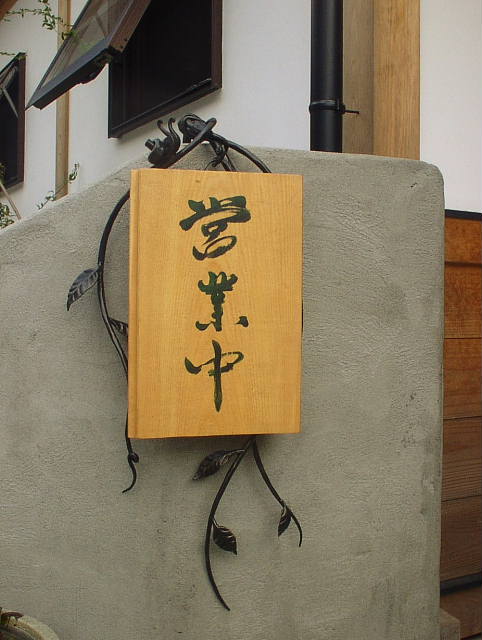 営業中